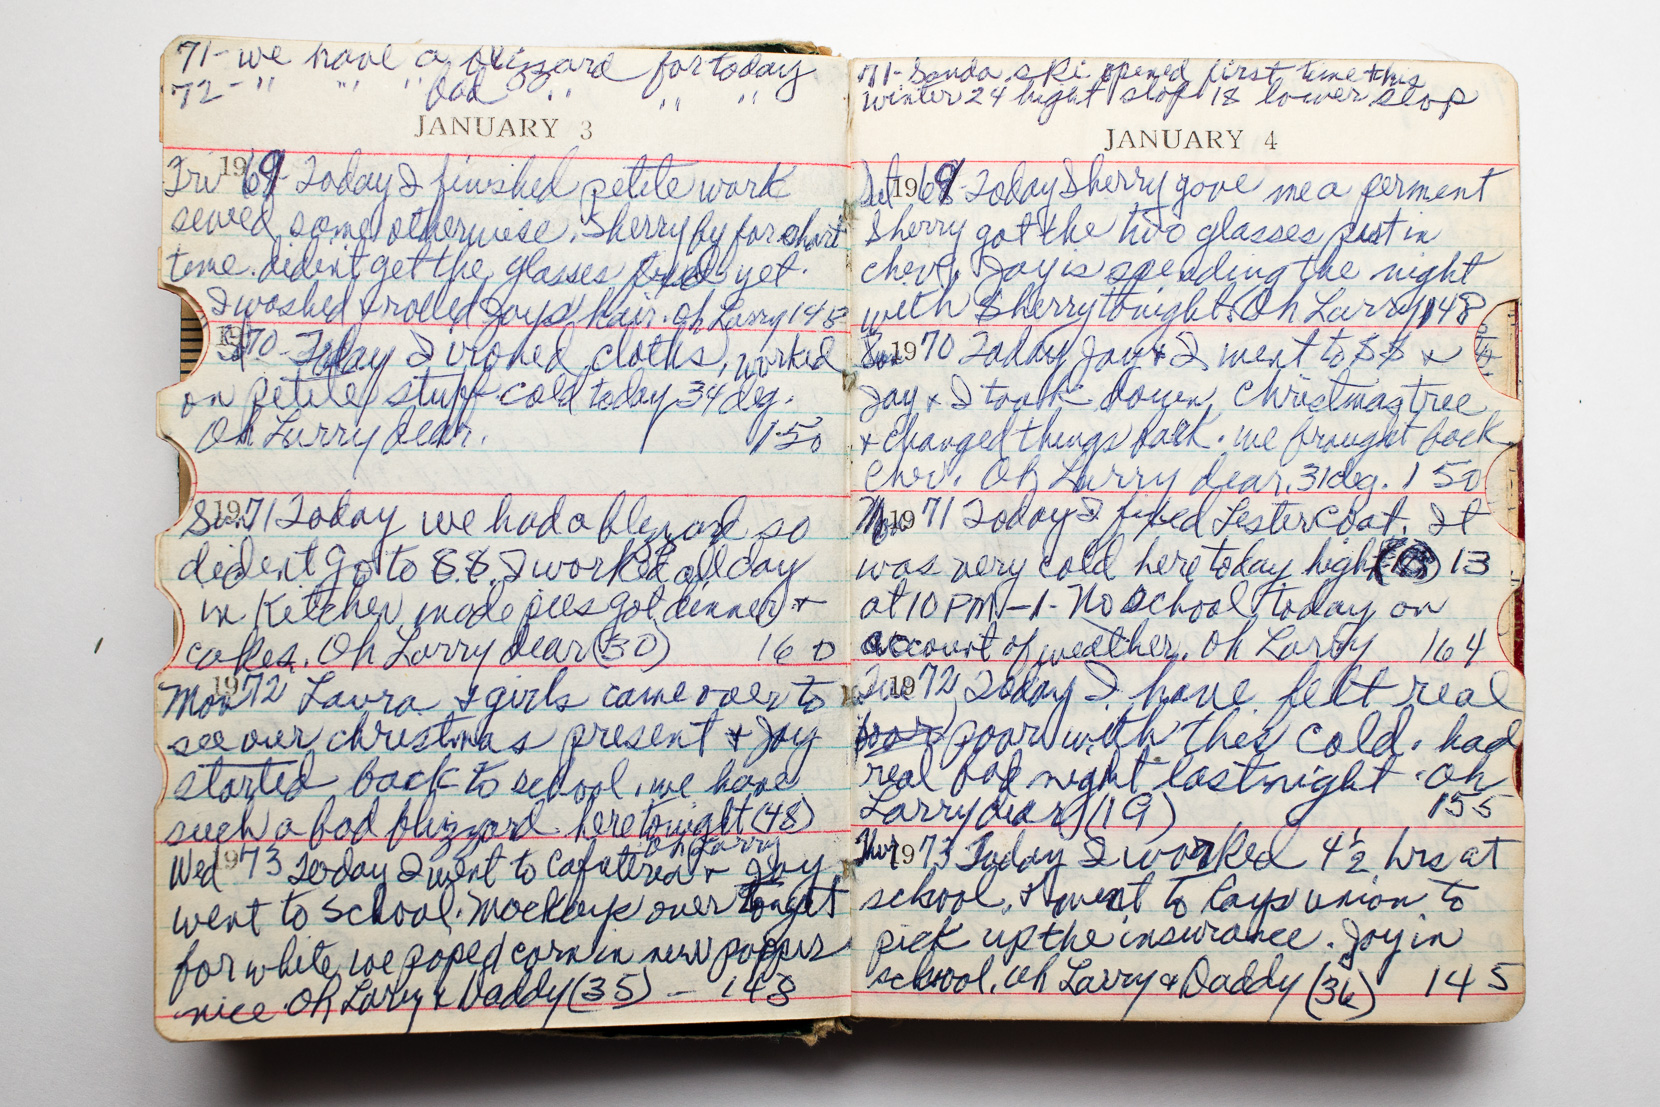 71- we have a blizzard for today
72- " " " bad " " "
JANUARY 3
Fri 1969 Today I finished petite work
sewed some otherwise. Sherry by for short
time. dident get the glasses yet.
I washed & rolled Joys hair. Oh Larry 148
1970 - Today I ironed cloths, worked
on petite stuff cold today 34 deg.
Oh Larry dear. 150
Sun 1971 Today we had a blizzard so
dident go to S.S. I worked all day
in Kitchen made pies got dinner &
cakes. Oh Larry dear (30) 160
Mon 1972 Laura & girls came over to
see our christmas present & Joy
started back to school, we have
such a bad blizzard here tonight (48)
Oh Larry
Wed 1973 Today I went to Cafuteria & Joy
went to school. over
for white we poped corn in new popper
nice Oh Larry & Daddy (35) - 148
71- Sanda ski opened first time this
winter 24 hight slop 18 lower slop
JANUARY 4
Sat 1969 Today Sherry gave me a perment
Sherry got the two glasses put in
chev. Joy is spending the night
with Sherry tonight. Oh Larry 148
Sun 1970 Today Joy & I went to S S &
Joy & I took down Christmas tree
& changed things back. we brought back
Chev. Oh Larry dear. 31 deg. 150
Mon 1971 Today I fixed Lester coat. It
was very cold here today high 13
at 10 PM -1- No school today on
account of weather. Oh Larry 164
Tue 1972 Today I have felt real
poor with this cold. had
real bad night last night. Oh
Larry dear (19) 155
Thur 1973 Today I worked 4 1/2 hrs at
school. I went to Cays union to
pick up the insurance. Joy in
school. Oh Larry & Daddy (36) 145